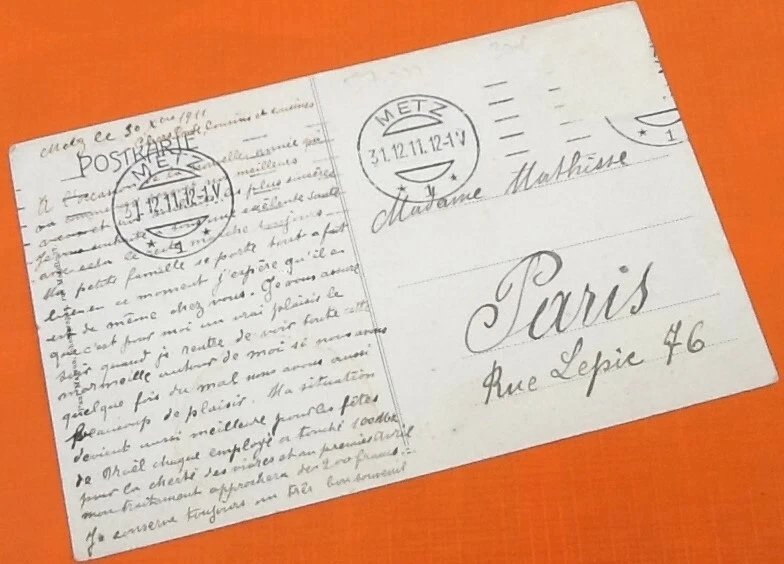 Metz le 30 Xbre 1911
Cousins et cousines
POSTKARTE
METZ
31.12.11.12-1V
* 1 *
A l'occasion de la nouvelle année qui
meilleures
les plus sincères
Je vous souhaite à tous une excélente santé
avec cela le reste marche toujours
Ma petite famille se porte tout a fait
bien en ce moment j'espère qu'il en
est de même chez vous. Je vous assure
que c'est pour moi un vrai plaisir le
soir quand je rentre de voir toute cette
marmaille autour de moi si nous avons
quelque fois du mal nous avons aussi
beaucoup de plaisir. Ma situation
devient aussi meilleure pour les fêtes
de Noël chaque employé a touché 100 Mk
pour la cherté des vivres et au premier Avril
mon traitement approchera des 200 francs.
Je conserve toujours un très bon souvenir
METZ
31.12.11.12-1V
* 1 *
1
Madame Mathisse
Paris
Rue Lepic 76